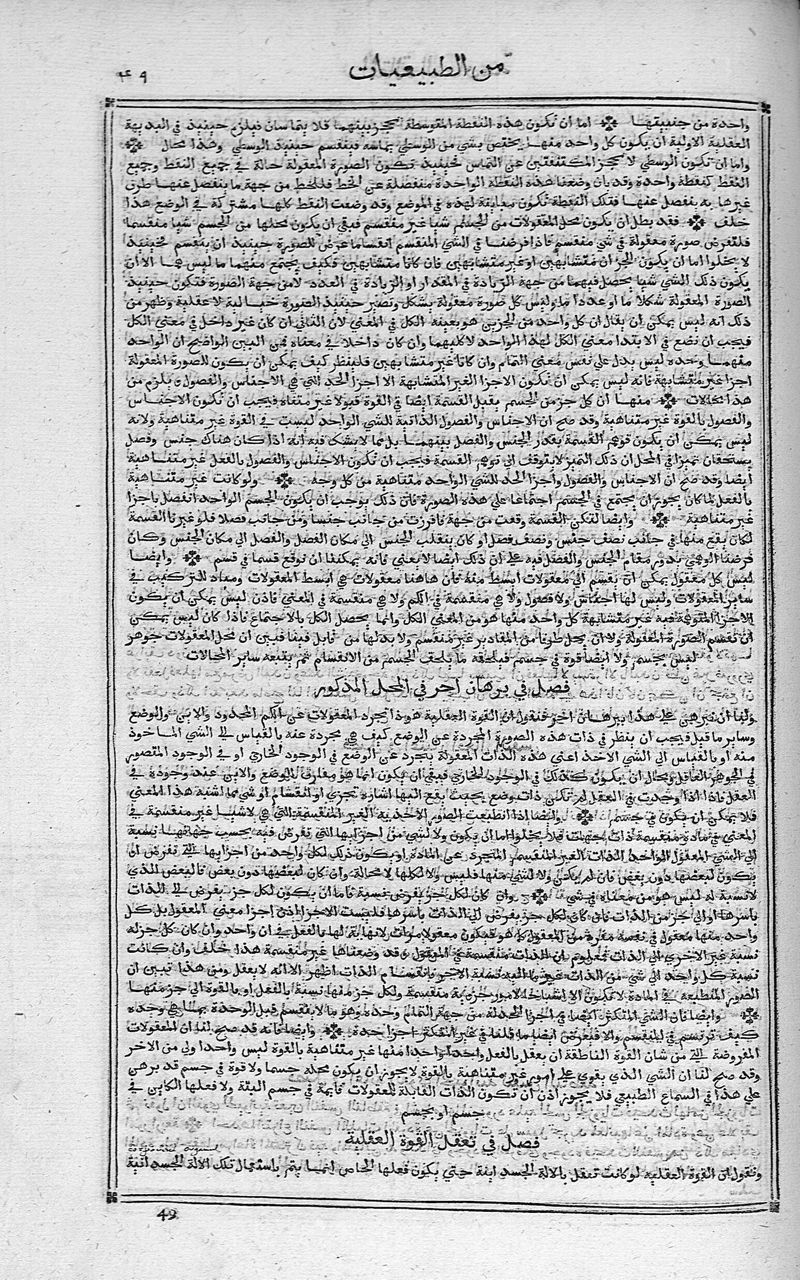 من الطبيعيات
٤٩
واحدة من جنبيتها اما ان تكون هذه النقطة المتوسطة تحجز بينهما فلا يتماسان فيلزم حينيذ في البديهة
العقلية الاولية ان يكون كل واحد منهما يختص بشي من الوسطي يماسه فينقسم حينيذ الوسطي وهذا محال
واما ان تكون الوسطي لا تحجز المكتنفتين عن التماس فحينيذ تكون الصورة المعقولة حالة في جميع النقط وجميع
النقط كنقطة واحدة وقد بان وضعنا هذه النقطة الواحدة منفصلة عن الخط فللخط من جهة ما ينفصل عنها طرف
غيرها به ينفصل عنها فتلك النقطة تكون مباينة لهذه في الموضع وقد وضعت النقط كلها مشتركة في الوضع هذا
خلف فقد بطل ان يكون محل المعقولات من الجسم شيا غير منقسم فبقي ان يكون محلها من الجسم شيا منقسما
فلنفرض صورة معقولة في شي منقسم فاذا فرضنا في الشي المنقسم انقساما عرض للصورة حينيذ ان ينقسم فحينيذ
لا يخلوا اما ان يكون الجزان متشابهين او غير متشابهين فان كانا متشابهين فكيف يجتمع منهما ما ليس هما الا ان
يكون ذلك الشي شيا يحصل فيهما من جهة الزيادة في المقدار او الزيادة في العدد لا من جهة الصورة فتكون حينيذ
الصورة المعقولة شكلا ما او عددا ما وليس كل صورة معقولة بشكل وتصير حينيذ الصورة خيالية لا عقلية وظهر من
ذلك انه ليس يمكن ان يقال ان كل واحد من الجزين هو بعينه الكل في المعني لان الثاني ان كان غير داخل في معني الكل
فيجب ان نضع في الابتدا معني الكل لهذا الواحد لا كليهما وان كان داخلا في معناه فمن البين الواضح ان الواحد
منهما وحده ليس يدل علي نفس معني التمام وان كانا غير متشابهين فلينظر كيف يمكن ان يكون للصورة المعقولة
اجزا غير متشابهة فانه ليس يمكن ان تكون الاجزا الغير المتشابهة الا اجزا الحد التي هي الاجناس والفصول ويلزم من
هذا محالات منها ان كل جز من الجسم يقبل القسمة ايضا في القوة قبولا غير متناه فيجب ان تكون الاجناس
والفصول بالقوة غير متناهية وقد صح ان الاجناس والفصول الذاتية للشي الواحد ليست في القوة غير متناهية ولانه
ليس يمكن ان يكون توهم القسمة يفرز الجنس والفصل بينهما بل مما لا يشك فيه انه اذا كان هناك جنس وفصل
يستحقان تميزا في المحل ان ذلك التميز لا يتوقف الي توهم القسمة فيجب ان تكون الاجناس والفصول بالفعل غير متناهية
ايضا وقد صح ان الاجناس والفصول واجزا الحد للشي الواحد متناهية من كل وجه ولو كانت غير متناهية
بالفعل لما كان يجوز ان يجتمع في الجسم اجتماعا علي هذه الصورة فان ذلك يوجب ان يكون الجسم الواحد انفصل باجزا
غير متناهية وايضا لتكن القسمة وقعت من جهة فافرزت من جانب جنسا ومن جانب فصلا فلو غيرنا القسمة
لكان يقع منها في جانب نصف جنس ونصف فصل او كان ينقلب الجنس الي مكان الفصل والفصل الي مكان الجنس وكان
فرضنا الوهمي يدور مقام الجنس والفصل فيه علي ان ذلك ايضا لا يغني فانه يمكننا ان نوقع قسما في قسم وايضا
ليس كل معقول يمكن ان يقسم الي معقولات ابسط منه فان هاهنا معقولات هي ابسط المعقولات ومباد للتركيب في
ساير المعقولات وليس لها اجناس ولا فصول ولا هي منقسمة في الكم ولا هي منقسمة في المعني فاذن ليس يمكن ان يكون
الاجزا المتوهمة فيه غير متشابهة كل واحد منها هو من المعني الكل وانما يحصل الكل بالاجتماع فاذا كان ليس يمكن
ان تنقسم الصورة المعقولة ولا ان يحل طرفا من المقادير غير منقسم ولا بد لها من قابل فينا فبين ان محل المعقولات جوهر
ليس بجسم ولا ايضا قوة في جسم فيلحقه ما يلحق الجسم من الانقسام ثم يتبعه ساير المحالات
فصل في برهان اخر في المحل المذكور
ولنا ان نبرهن علي هذا ببرهان اخر فنقول ان القوة العقلية هو ذا يجرد المعقولات عن الكم المحدود والاين والوضع
وساير ما قيل فيجب ان ينظر في ذات هذه الصورة المجردة عن الوضع كيف هي مجردة عنه بالقياس الي الشي الماخوذ
منه او بالقياس الي الشي الاخذ اعني هذه الذات المعقولة يتجرد عن الوضع في الوجود الخارجي او في الوجود المتصور
في الجوهر العاقل ومحال ان يكون كذلك في الوجود الخارجي فبقي ان يكون انما هو مفارق للوضع والاين عند وجوده في
العقل فاذا اذا وجدت في العقل لم تكن ذات وضع بحيث يقع اليها اشارة تجزي او انقسام او شي مما اشبه هذا المعني
فلا يمكن ان يكون في جسم وايضا اذا انطبعت الصور الاحدية الغير المنقسمة التي هي لاشيا غير منقسمة في
المعني في مادة منقسمة ذات جهات فلا يخلوا اما ان يكون ولا لشي من اجزايها التي تفرض فيه بحسب جهاتها نسبة
الي الشي المعقول الواحد الذات الغير المنقسم المتجرد عن المادة او يكون ذلك لكل واحد من اجزايها التي تفرض او
يكون لبعضها دون بعض فان لم يكن ولا لشي منها فليس ولا لكلها لا محالة وان كان لبعضها دون بعض فالبعض الذي
لا نسبة له ليس هو من معناه في شي وان كان لكل جز يفرض نسبة فاما ان يكون لكل جز يفرض الي الذات
باسرها او الي جز من الذات فان كان لكل جز يفرض الي الذات باسرها فليست الاجزا اذن اجزا معني المعقول بل كل
واحد منها معقول في نفسه مفرد من المعقول كما هو فيكون معقولا مرات لا نهاية لها بالفعل في ان واحد وان كان كل جز له
نسبة غير الاخري الي الذات فمعلوم ان الذات منقسمة في المعقول وقد وضعناها غير منقسمة هذا خلف وان كانت
نسبة كل واحد الي شي من الذات غير ما اليه نسبة الاخر فانقسام الذات اظهر الا انه لا يعقل ومن هذا تبين ان
الصور المنطبعة في المادة لا تكون الا اشباحا لامور جزيية منقسمة ولكل جز منها نسبة بالفعل او بالقوة الي جز منها
وايضا فان الشي المتكثر ايضا في اجزا الحد له من جهة التمام وحدة وهو ما لا ينقسم فتلك الوحدة بما هي وحدة
كيف ترتسم في المنقسم والا فيعرض ايضا ما قلنا في غير المتكثر اجزا حده وايضا فانه قد صح لنا ان المعقولات
المفروضة التي من شان القوة الناطقة ان يعقل بالفعل واحدا واحدا منها غير متناهية بالقوة ليس واحدا ولي من الاخر
وقد صح لنا ان الشي الذي يقوي علي امور غير متناهية بالقوة لا يجوز ان يكون محله جسما ولا قوة في جسم قد برهن
علي هذا في السماع الطبيعي فلا يجوز اذن ان تكون الذات القابلة للعقولات قايمة في جسم البتة ولا فعلها الكاين في
جسم او بجسم
فصل في تعقل القوة العقلية
ونقول ان القوة العقلية لو كانت تعقل بالالة الجسدانية حتي يكون فعلها الخاص انما يتم باستعمال تلك الالة الجسدانية
49